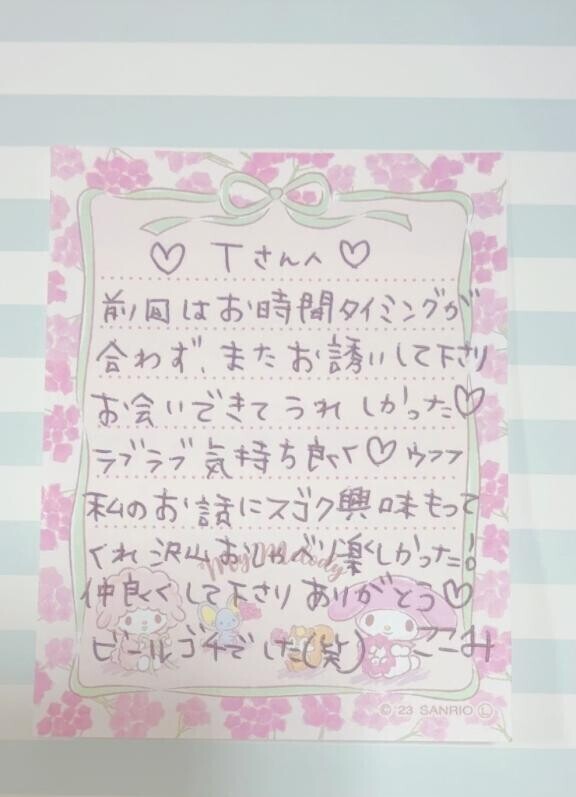 ♡ Tさんへ ♡
前回はお時間タイミングが
合わず、またお誘いして下さり
お会いできてうれしかった♡
ラブラブ気持ち良く♡ウフフ
私のお話にスゴク興味もって
くれ沢山おしゃべり楽しかった!
My Melody
仲良くして下さりありがとう♡
ビールゴチでした(笑) ここみ
© '23 SANRIO Ⓛ